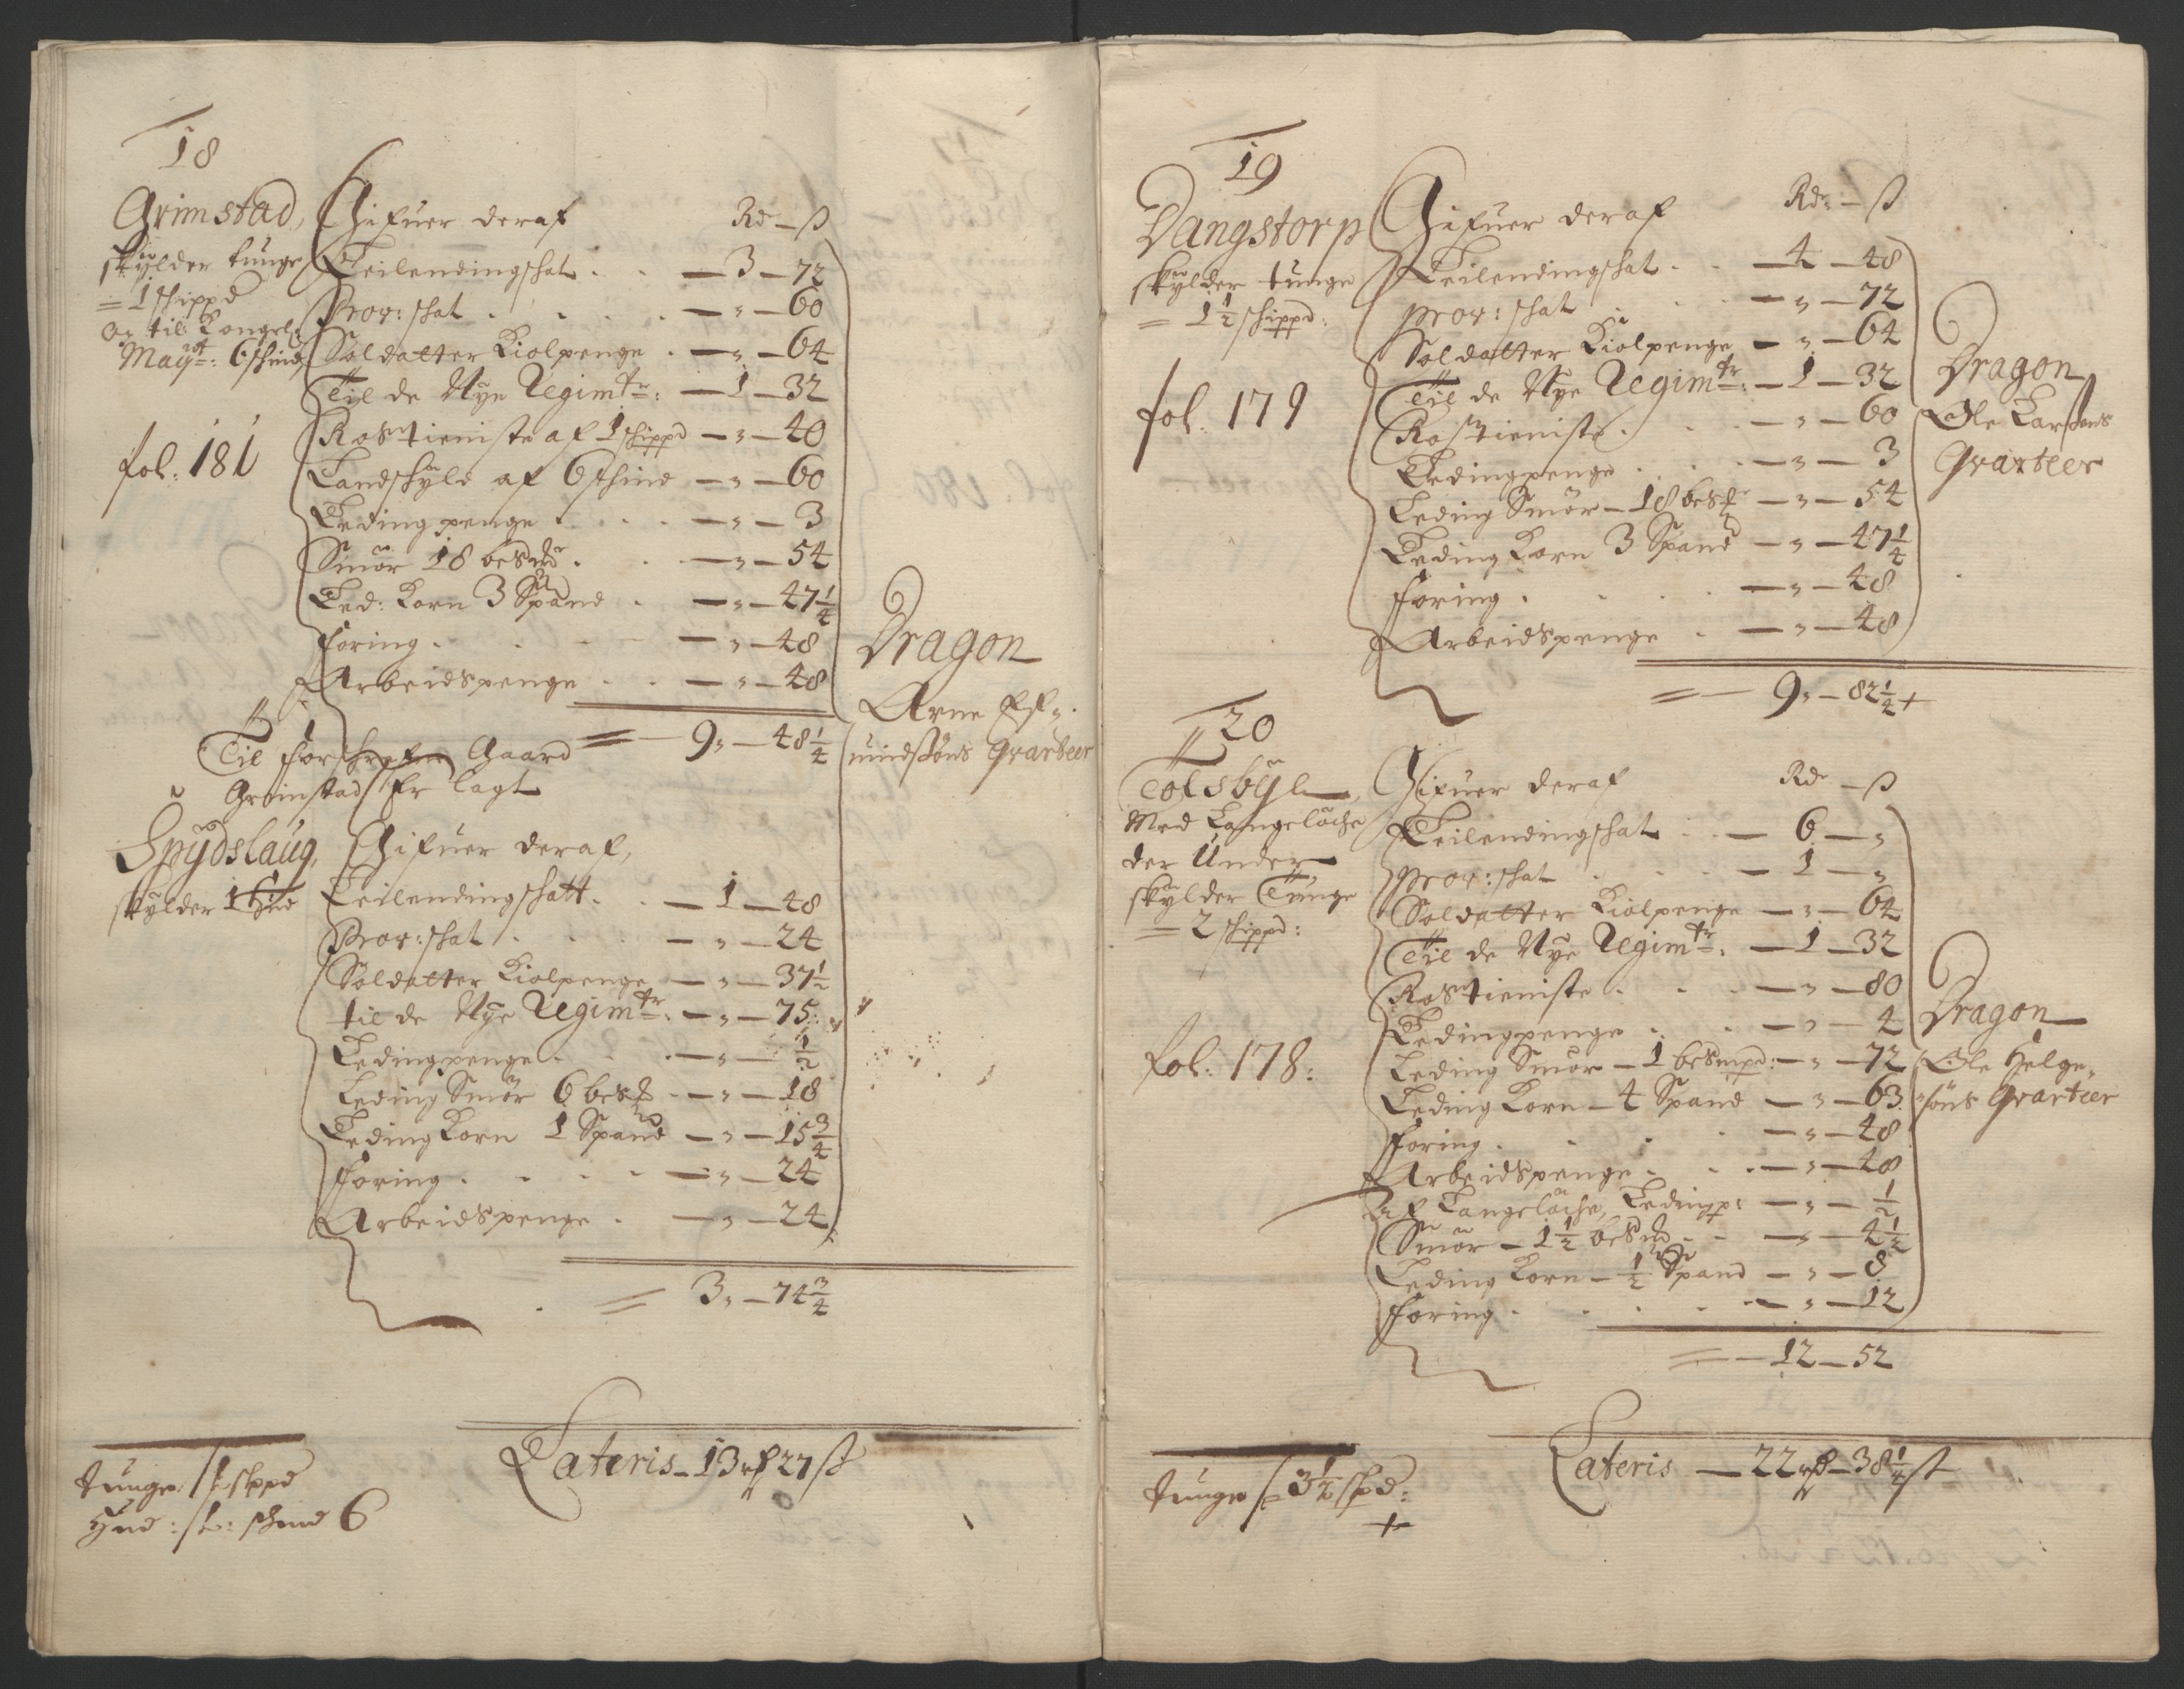 18
Grimstad,
skÿlder tunge
= 1 schippd
og til Kongel:
Mayst: 6 schind
fol: 181
Gifuer deraf Rdr — ß
Leilendingschat . . — 3 — 72
Prov: schat . . . . — " — 60
Soldatter Kiolpenge . — " — 64
Til de Nye Regimtr: — 1 — 32
Rostieniste af 1 schippd — " — 40
Landschÿld af 6 schind — " — 60
Leding penge . . . . — " — 3
Smör 18 besmr . . — " — 54
Led: Korn 3 Spand . — " — 47 1/4
foring . . . — " — 48
Arbeidspenge . . — " — 48
= — 9 " — 48 1/4
Dragon
Arne
mindsöns Qvarteer
Til forschrefne Gaard
Grimstad Er lagt
Spÿdslaug,
skÿlder 1 hud
Gifuer deraf,
Leilendingschatt . . — 1 — 48
Prov: schat . . . — " — 24
Soldatter Kiolpenge — " — 37 1/2
til de Nÿe Regimtr: — " — 75
Ledingpenge . . . — " — 1/2
Leding Smör 6 besmr — " — 18
Leding Korn 1 Spand — " — 15 3/4
foring . . . . — " — 24
Arbeidspenge . — " — 24
= 3 " — 74 3/4
Lateris — 13 rd 27 ß
tunge 1 schppd
hud: schind 6
19
Dangstorp
skÿlder tunge
= 1 1/2 schippd:
fol. 179
Gifuer deraf Rdr — ß
Leilendingschat . . — 4 — 48
prov: schat . . . — " — 72
Soldatter Kiolpenge — " — 64
Til de Nÿe Regimtr: — 1 — 32
Rostieniste . . . — " — 60
Ledingpenge . . . — " — 3
Leding Smör — 18 besmr — " — 54
Leding Korn 3 Spand — " — 47 1/4
foring . . . . — " — 48
Arbeidspenge . — " — 48
= — 9 " — 82 1/4 +
Dragon
Ole Larsens
Qvarteer
20
Tolsbÿe,
Med Langelöche
der Under,
skÿlder Tunge
= 2 schippd:
fol: 178:
Gifuer deraf Rdr — ß
Leilendingschat . . — 6 — "
prov: schat . . . — 1 — "
Soldatter Kiolpenge — " — 64
Til de Nye Regimtr: — 1 — 32
Rostieniste . . . — " — 80
Ledingpenge . . — " — 4
Leding Smör — 1 besmpd: — " — 72
Leding Korn — 4 Spand — " — 63
foring . . . . — " — 48
Arbeidspenge . . . — " — 48
Af Langelöche, Ledingp: — " — 1/2
Smör — 1 1/2 besmr . . — " — 4 1/2
Leding Korn — 1/2 Spand — " — 8
foring . . . . . — " — 12
= — 12 — 52
Dragon
Ole Helge-
söns Qvarteer
Lateris — 22 rd — 38 1/4 ß
tunge 3 1/2 schpd:
+